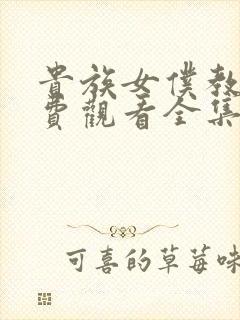 貴族女僕教
費觀看全集
可喜的草莓味